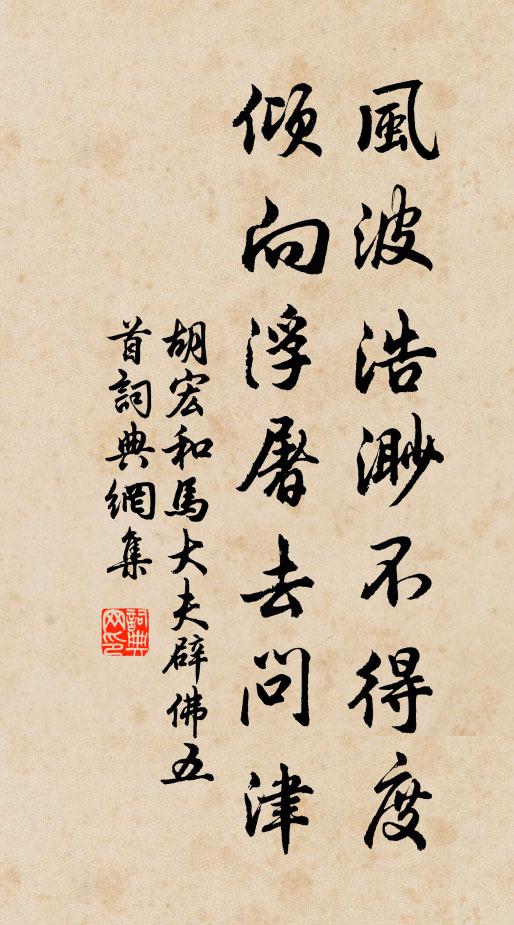 風波浩渺不得度
傾向浮屠去問津
胡宏和馬大夫辟佛五
首詞典網集
詞典网印